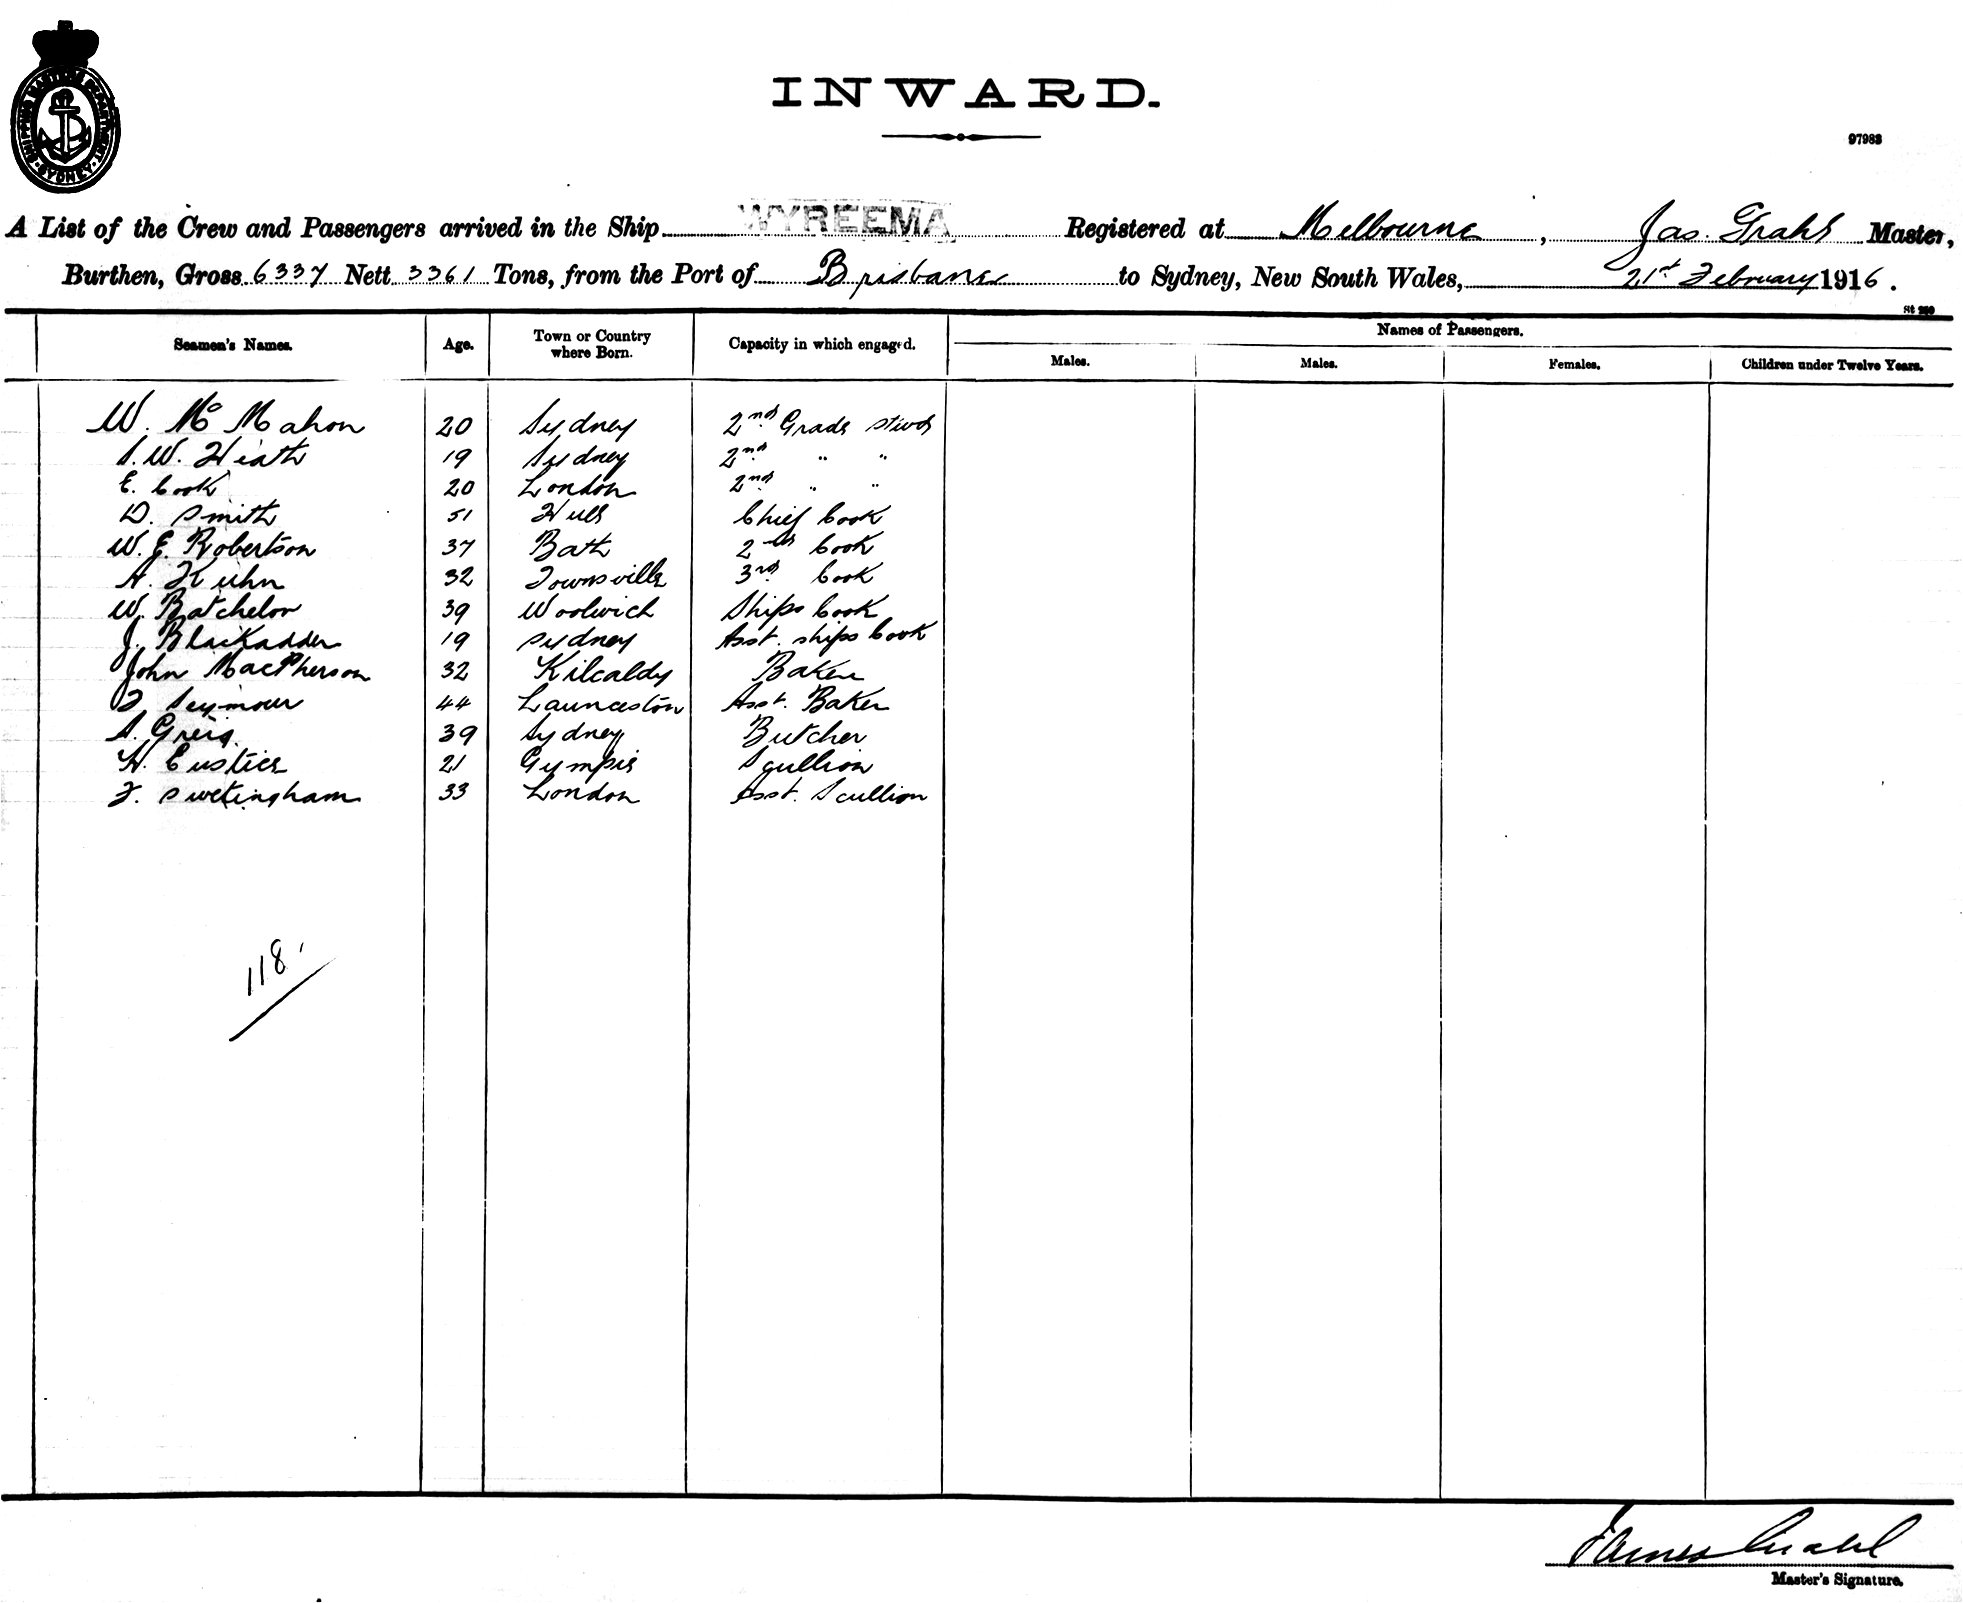 SHIPPING MASTERS DEPARTMENT SYDNEY
INWARD.
97983
A List of the Crew and Passengers arrived in the Ship WYREEMA Registered at Melbourne, Jas. Grahl Master,
Burthen, Gross 6337 Nett 3361 Tons, from the Port of Brisbane to Sydney, New South Wales, 21st February 1916.
Seamen's Names. Age. Town or Country where Born. Capacity in which engaged. Names of Passengers.
Males. Males. Females. Children under Twelve Years.
W. McMahon 20 Sydney 2nd Grade stwd
S. W. Heath 19 Sydney 2nd " "
E. Cook 20 London 2nd " "
D. Smith 51 Hull Chief Cook
W. E. Robertson 37 Bath 2nd Cook
A. Kuhn 32 Townsville 3rd Cook
W. Batchelor 39 Woolwich Ships Cook
J. Blackadder 19 Sydney Asst. ships Cook
John MacPherson 32 Kilcaldy Baker
F Seymour 44 Launceston Asst. Baker
S. Greig 39 Sydney Butcher
H. Eustice 21 Gympie Scullion
F. Swetingham 33 London Asst. Scullion
118.
James Grahl
Master's Signature.